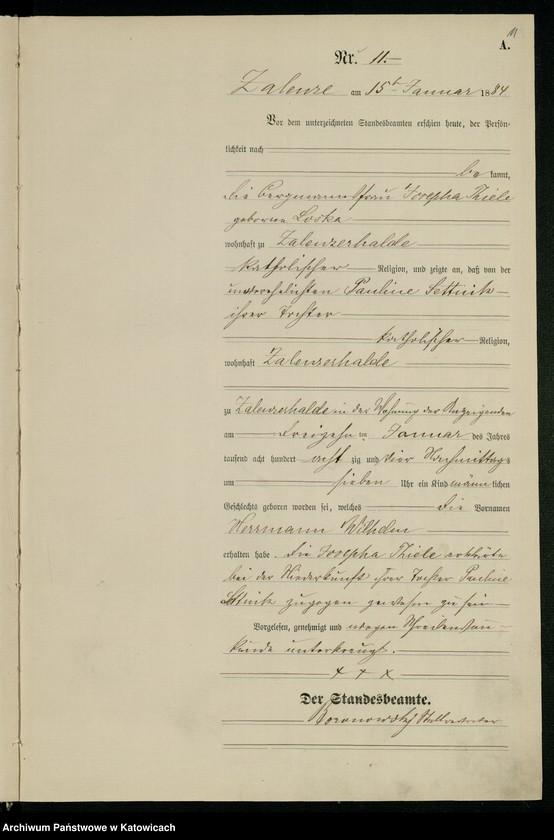 11
A.
Nr. 11.
Zalenze am 15t Januar 1884.
Vor dem unterzeichneten Standesbeamten erschien heute, der Persön-
lichkeit nach
be kannt,
die Bergmannsfrau Josepha Thiele
geborene Loska
wohnhaft zu Zalenzerhalde
katholischer Religion, und zeigte an, daß von der
unverehelichten Pauline Settnik
ihrer Tochter
katholischer Religion,
wohnhaft Zalenzerhalde
zu Zalenzerhalde in der Wohnung der Anzeigenden
am dreizehn ten Januar des Jahres
tausend acht hundert acht zig und vier Nachmittags
um sieben Uhr ein Kind männ lichen
Geschlechts geboren worden sei, welches die Vornamen
Herrmann Wilhelm
erhalten habe. Die Josepha Thiele erklärte
bei der Niederkunft ihrer Tochter Pauline
Settnik zugegen gewesen zu sein
Vorgelesen, genehmigt und wegen Schreibensun-
kunde unterkreuzt.
+ + +
Der Standesbeamte.
Stellvertreter
Archiwum Państwowe w Katowicach